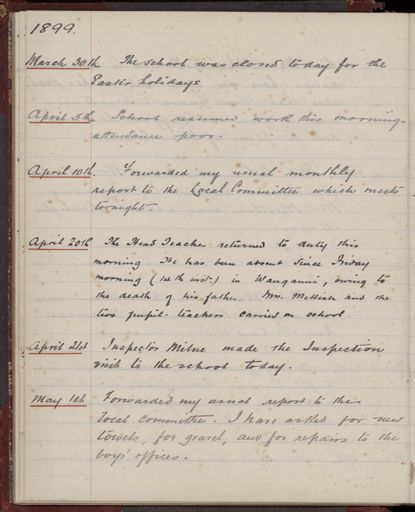 1899.
March 30th The school was closed today for the
Easter holidays
April 5th School resumed work this morning-
attendance poor.
April 10th Forwarded my usual monthly
report to the Local Committee which meets
tonight.
April 20th The Head Teacher returned to duty this
morning He has been absent since Friday
morning (14th inst.) in Wanganui, owing to
the death of his father. Mrs. Mellish and the
two pupil-teachers carried on school.
April 21st Inspector Milne made the Inspection
visit to the school today.
May 1st Forwarded my usual report to the
local committee. I have asked for new
towels, for gravel, and for repairs to the
boys' offices.